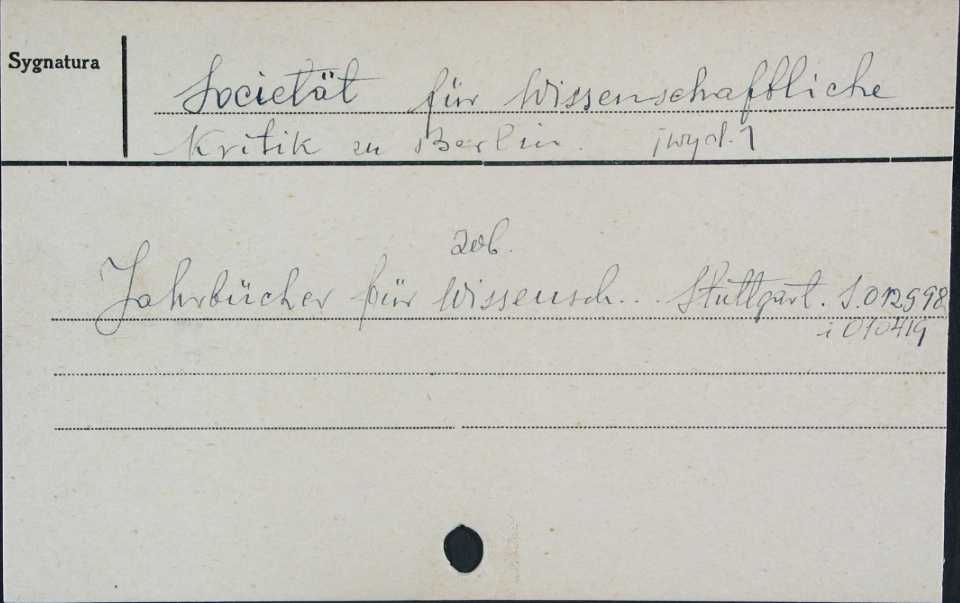 Sygnatura
Societät für Wissenschaftliche
Kritik zu Berlin. [wyd.]
zob.
Jahrbücher für Wissensch... Stuttgart. S. 012998
i 010419